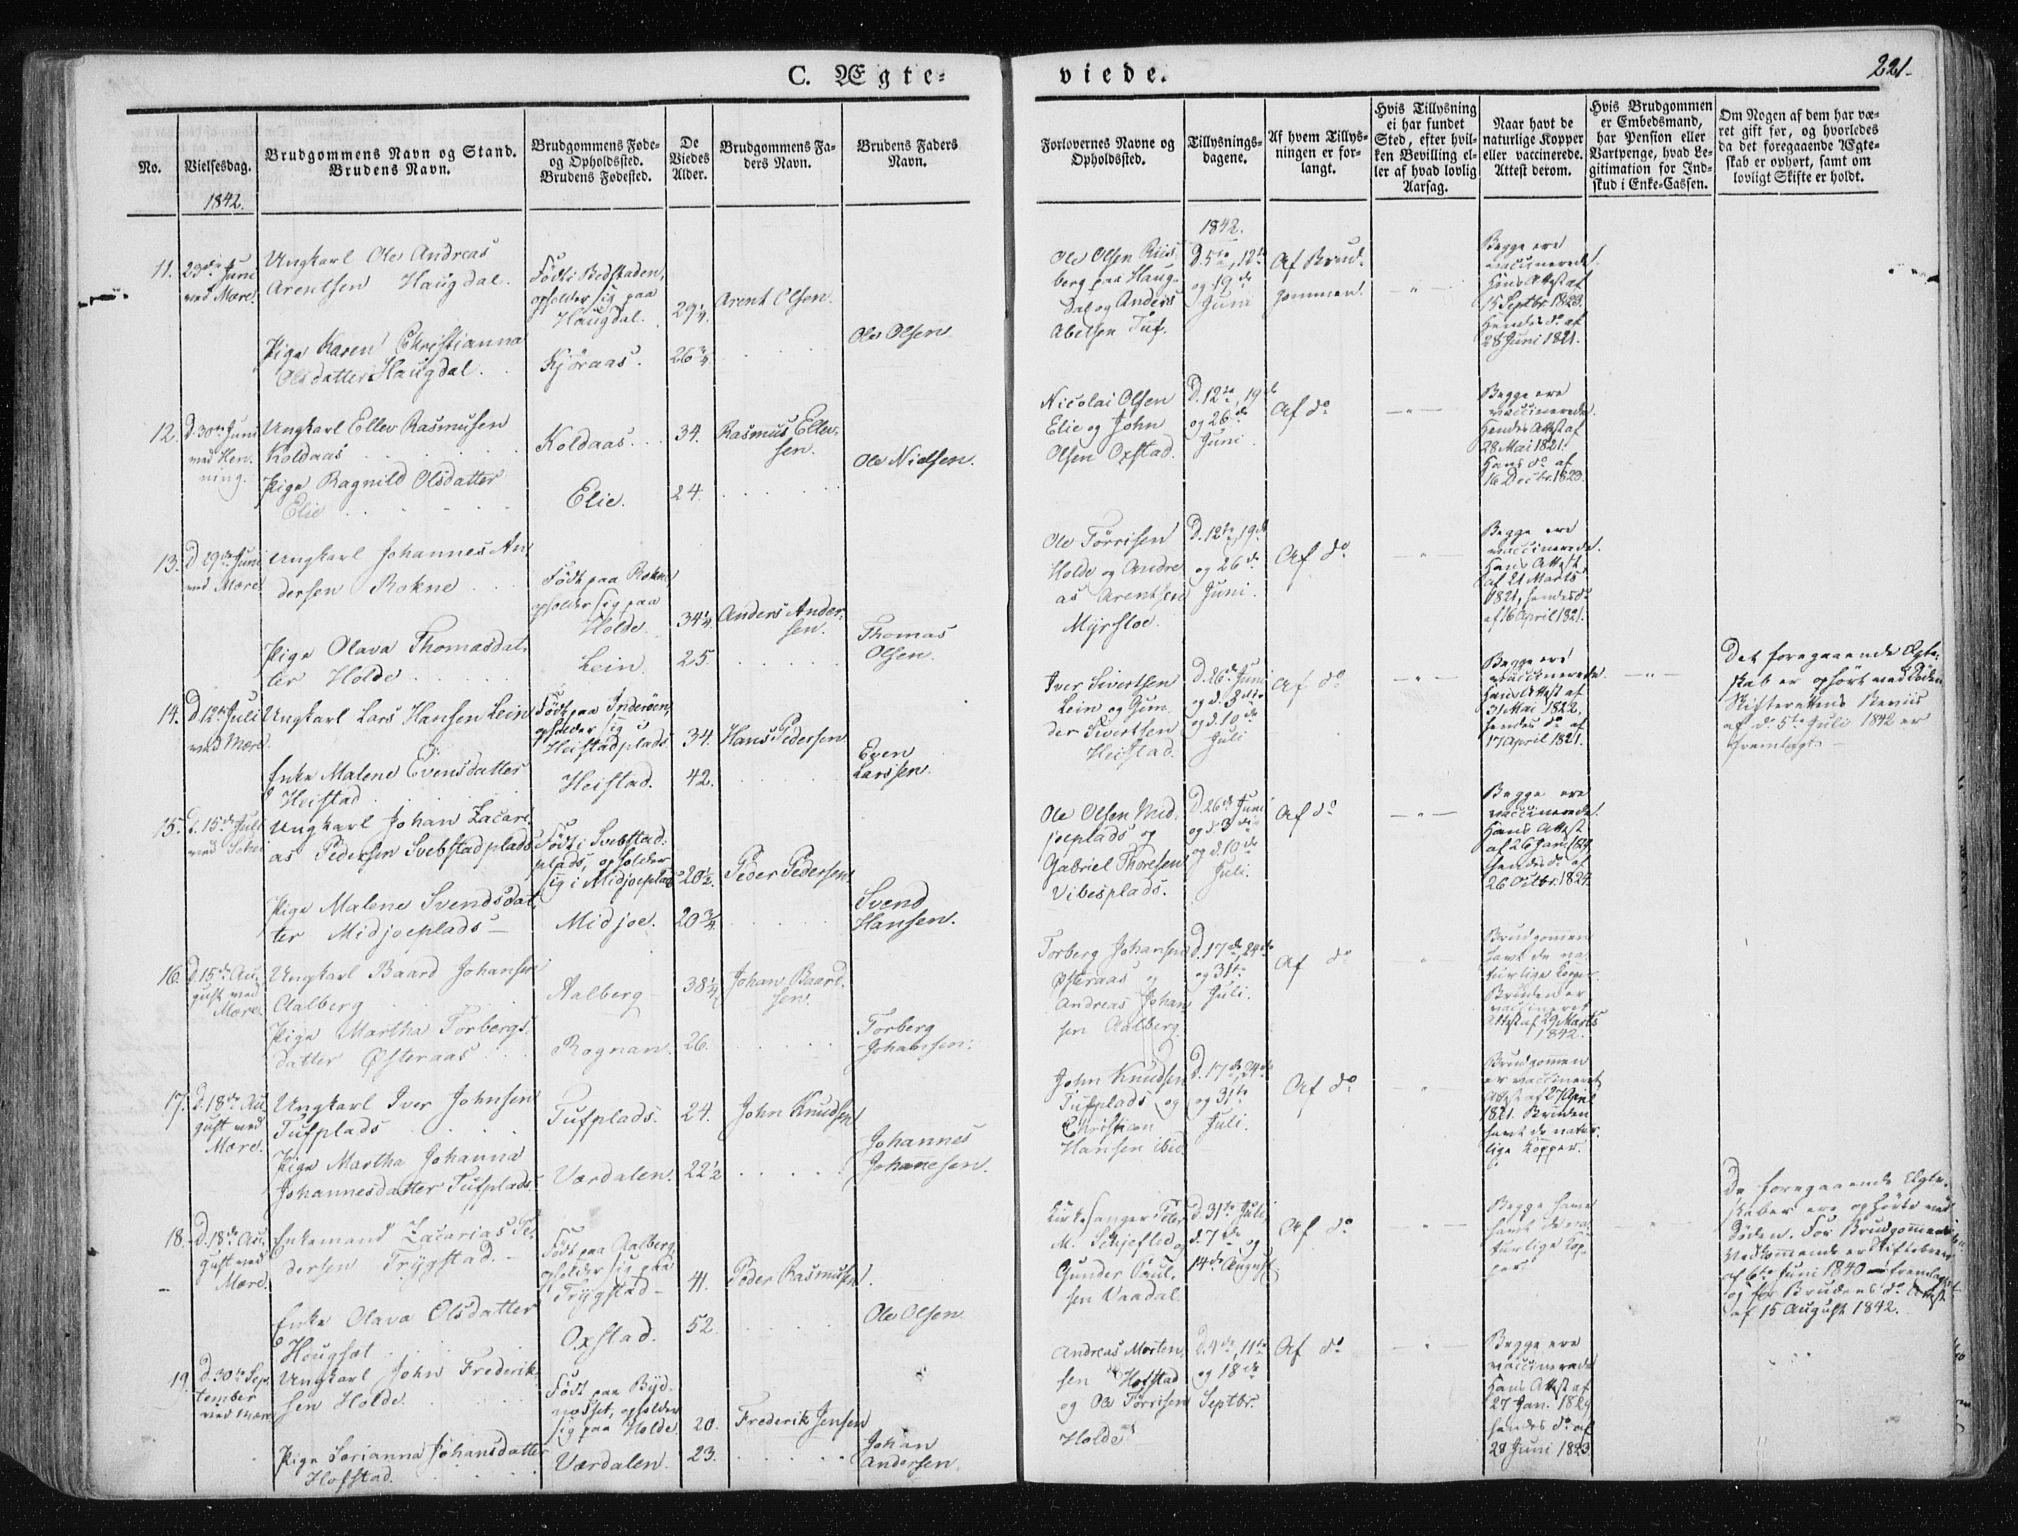 221.
C. Ægte-
viede.
No.
Vielsesdag.
Brudgommens Navn og Stand.
Brudens Navn.
Brudgommens Føde-
og Opholdssted.
Brudens Fødested.
De
Viedes
Alder.
Brudgommens Fa-
ders Navn.
Brudens Faders
Navn.
Forlovernes Navne og
Opholdssted.
Tillysnings-
dagene.
Af hvem Tillys-
ningen er for-
langt.
Hvis Tillysning
ei har fundet
Sted, efter hvil-
ken Bevilling el-
ler af hvad lovlig
Aarsag.
Naar havt de
naturlige Kopper
eller vaccinerede.
Attest derom.
Hvis Brudgommen
er Embedsmand,
har Pension eller
Vartpenge, hvad Le-
gitimation for Ind-
skud i Enke-Cassen.
Om Nogen af dem har væ-
ret gift før, og hvorledes
da det foregaaende Ægte-
skab er ophørt, samt om
lovligt Skifte er holdt.
1842.
1842.
11.
23de Juni
ved Mære.
Ungkarl Ole Andreas
Arentsen Haugdal.
Pige Karen Christianna
Olsdatter Haugdal.
Født i Bedstaden,
opholder sig paa
Haugdal.
Kjøraas.
29 1/4.
26 3/4
Arent Olsen.
Ole Olsen.
Ole Olsen Riis
berg paa Haug-
dal og Anders
Abelsen Tuf.
D. 5te, 12te
og 19de
Juni
Af Brud-
gommen.
Begge ere
vaccinerede.
Hans Attest af
15 Septbr. 1823.
Hendes do. af
28 Juni 1821.
12.
D. 30te Juni
ved Hen-
ning.
Ungkarl Ellev Rasmusen
Koldaas
Pige Ragnild Olsdatter
Elie
Koldaas.
Elie.
34.
24.
Rasmus Ellev-
sen.
Ole Nielsen.
Nicolai Olsen
Elie og John
Olsen Oxstad.
D. 12te, 19de
og 26de
Juni.
Af do
Begge ere
vaccinerede.
Hendes Attest af
28 Mai 1821.
Hans do. af
16 Decbr. 1823.
13.
D. 29de Juni
ved Mære
Ungkarl Johannes An-
dersen Rokne
Pige Olava Thomasdat-
ter Holde
Født paa Rokne
opholder sig paa
Holde
Lein
34 1/4
25.
Anders Ander-
sen.
Thomas
Olsen.
Ole Tørrisen
Holde og Andre
as Arentsen
Myrsloe.
D. 12te, 19de
og 26de
Juni.
Af do
Begge ere
vaccinerede.
Hans Attest
af 21 Marts
1821, hendes do
af 16 April 1821.
14.
D. 12te Juli
ved Mære.
Ungkarl Lars Hansen Lein
Enke Malene Evensdatter
Heistad
Født paa Inderøen,
opholder sig i
Heistadplads
Heistad.
34.
42.
Hans Pedersen
Even
Larssen.
Iver Sivertsen
Lein og Gun-
der Sivertsen
Heistad.
D. 26de Juni
og d. 3die
og d. 10de
Juli
Af do
Begge ere
vaccinerede.
Hans Attest af
31 Mai 1822,
hendes do. af
17 April 1821.
Det foregaaende Ægte-
skab er ophørt ved Døden
Skifterettens Beviis
af d. 5te Juli 1842 er
fremlagt.
15.
D. 15de Juli
ved
Ungkarl Johan Zacari-
as Pedersen Svebstadplads
Pige Malene Svendsdat-
ter Midjoeplads
Født i Svebstad-
plads, opholder
sig i Midjoeplads
Midjoe.
20 1/2.
20 3/4
Peder Pedersen
Svend
Hansen.
Ole Olsen Mid-
joeplads og
Gabriel Thoresen
Vibesplads.
D. 26de Juni
og d. 3die
og d. 10de
Juli.
Af do
Begge ere
vaccinerede.
Hans Attest
af 26 Jan. 1824
hendes do. af
26 Octbr. 1824.
16.
D. 15de Au-
gust ved
Mære.
Ungkarl Baard Johansen
Aalberg
Pige Martha Torbergs
datter Østeraas
Aalberg
Rognan.
38 1/4
26.
Johan Baard-
sen.
Torberg
Johansen.
Torberg Johansen
Østeraas og
Andreas Johan
sen Aalberg.
D. 17de, 24de
og 31te
Juli.
Af do
Brudgommen
havt de na-
turlige Kopper.
Bruden er
vaccineret
Attest af 29 Marts
1842.
17.
D. 18de Au
gust ved
Mære.
Ungkarl Iver Johnsen
Tufplads
Pige Martha Johanna
Johannesdatter Tufplads.
Tufplads.
Værdalen.
24.
22 1/2
John Knudsen
Johannes
Johannesen.
John Knudsen
Tufplads og
Christian
Hansen ibid.
D. 17de, 24de
og 31te
Juli.
Af do
Brudgommen
er vaccineret
Attest af 27 April
1821. Bruden
havt de natur-
lige Kopper.
18.
D. 18de Au-
gust ved
Mære.
Enkemand Zacarias Pe-
dersen Trygstad.
Enke Olava Olsdatter
Hougsæt
Født paa Aalberg,
opholder sig paa
Trygstad
Oxstad.
41.
52.
Peder Rasmusen.
Ole Olsen.
Kirkesanger Peter
M. Schjeflo og
Gunder Poul-
sen Vaadal.
D. 31te Juli,
d. 7de og
14de August.
Af do
Begge have
havt de na-
turlige Kop-
per.
De foregaaende Ægte-
skaber ere ophørte ved
Døden. For Brudgommens
Vedkommende er Skiftebrev
af 6te Juni 1840 fremlagt
og for Brudens do. Attest
af 15 August 1842.
19.
D. 30te Sep-
tember
ved Mære
Ungkarl John Frederik-
sen Holde.
Pige Serianna Johansdatter
Hofstad.
Født paa Byd-
, opholder
sig paa Holde.
Værdalen.
20.
23.
Frederik Jensen
Johan
Andersen.
Andreas Morten
sen Hofstad
og Ole Tørrisen
Holde
D. 4de, 11te
og 18de
Septbr.
Af do
Begge ere
vaccinerede
Hans Attest af
27 Jan. 1824
hendes do. af
28 Juni 1823